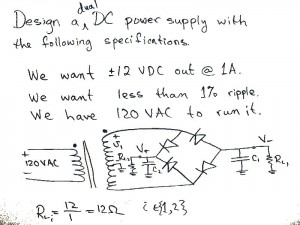 Design a dual DC power supply with
the following specifications.
We want ±12 VDC out @ 1A.
We want less than 1% ripple.
We have 120 VAC to run it.
+
120VAC
-
+
V₁
-
R_L₂
V+
C₂
V-
C₁
R_L₁
R_Lᵢ = 12/1 = 12Ω i ∈ {1,2}